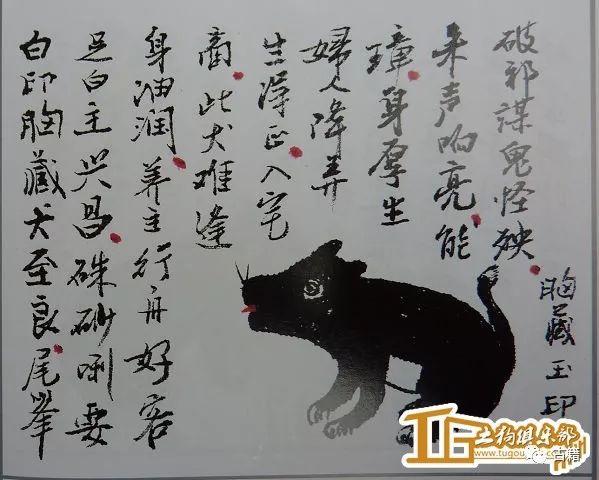 白印胸藏犬至良尾举
足白主兴昌硃砂唎要
身油润养主行舟好客
商此犬难逢
生淂正入宅
婦人降弄
璋身厚生
来声响亮能
破邪谋鬼怪殃
胸藏玉印
土狗俱乐部
www.tugou
古籍